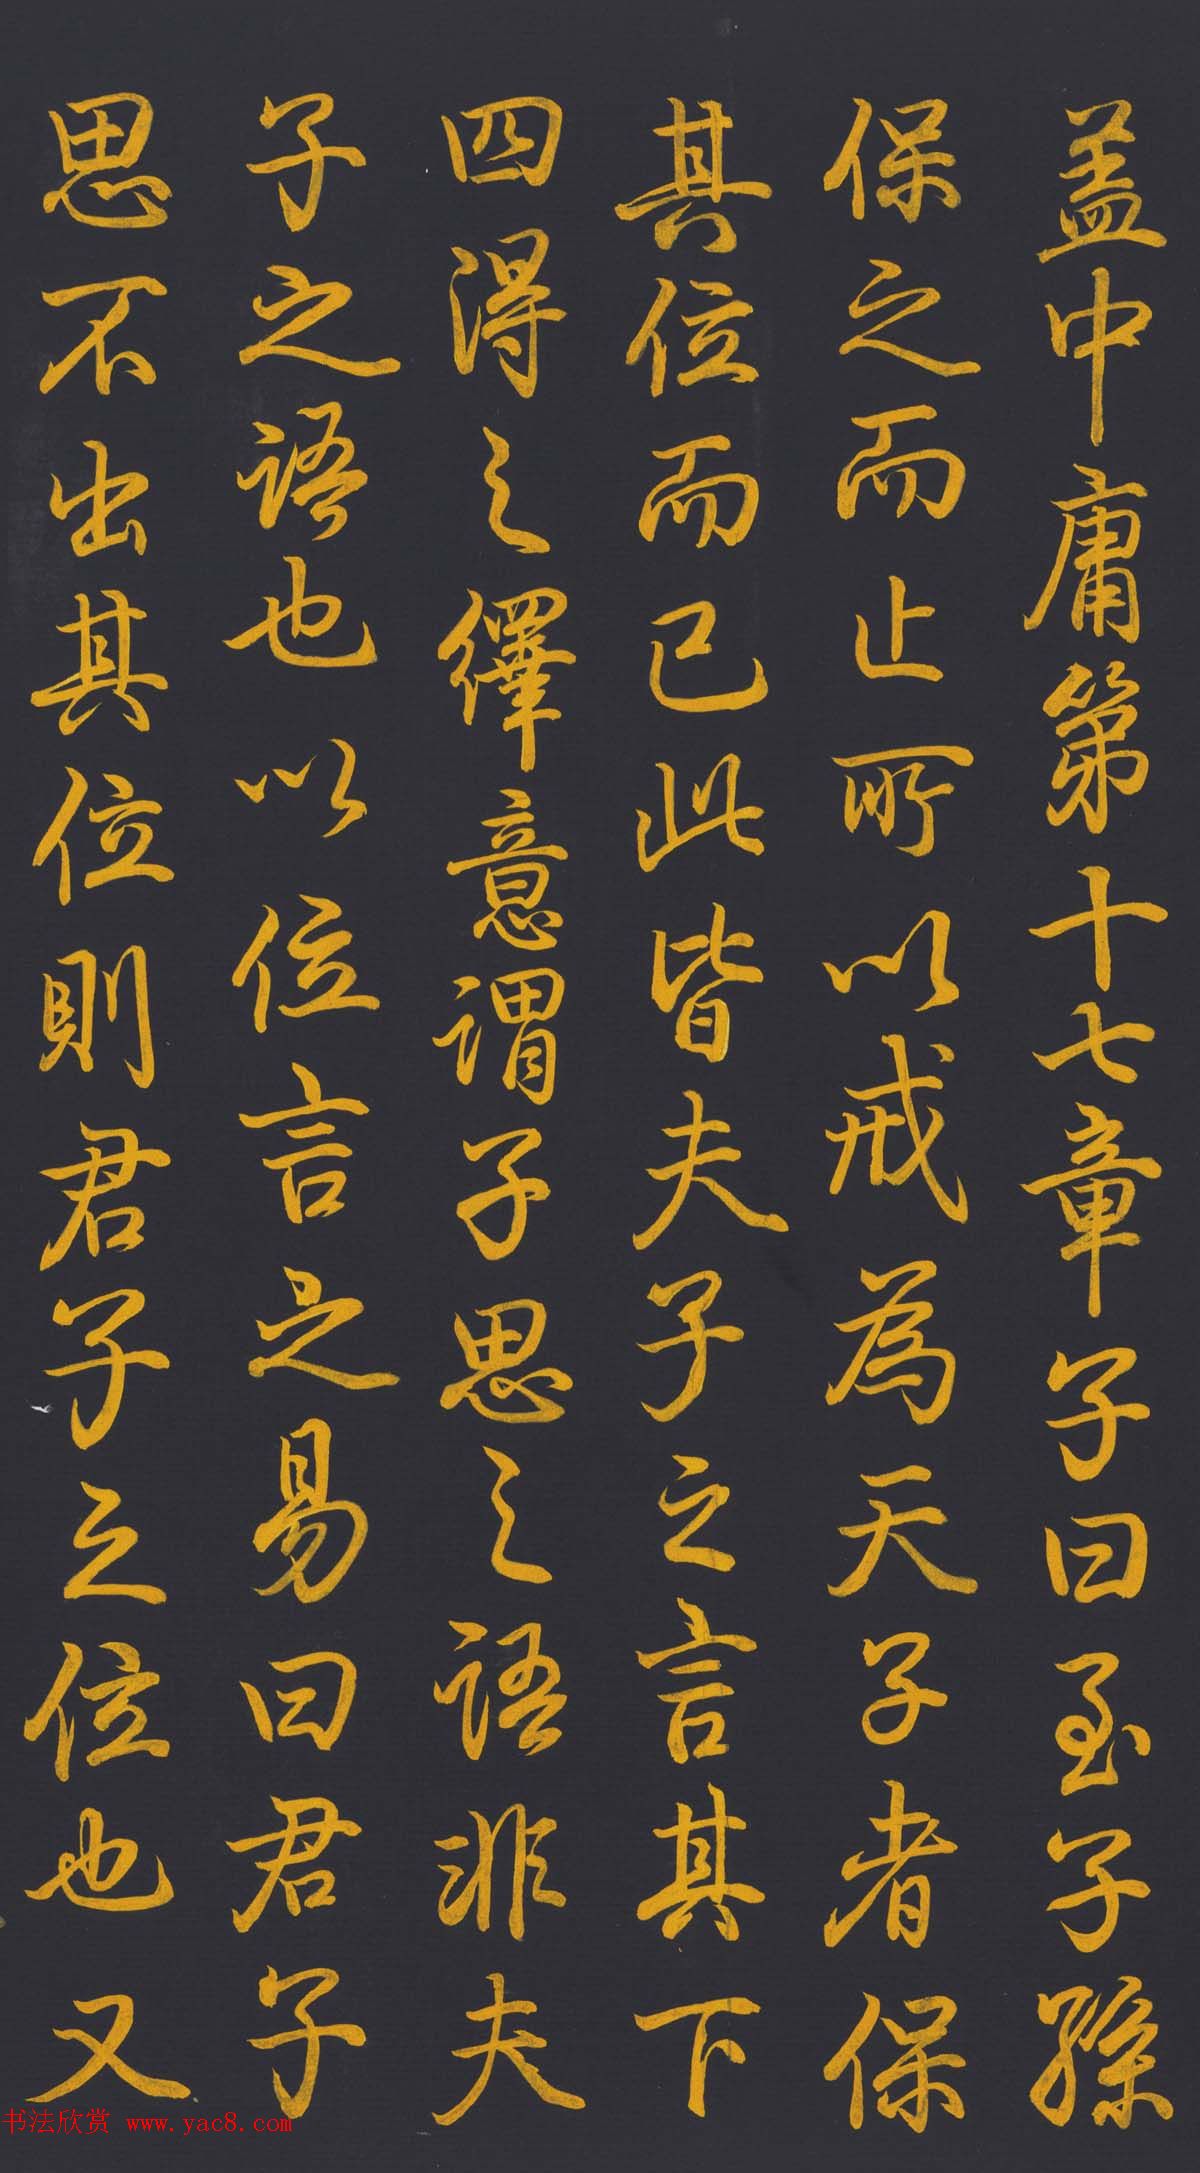 盖中庸第十七章子曰至子孫
保之而止所以戒為天子者保
其位而已此皆夫子之言其下
四得之繹意謂子思之語非夫
子之語也以位言之易曰君子
思不出其位則君子之位也又
书法欣赏 www.yac8.com